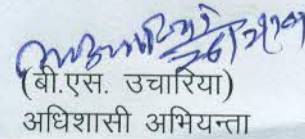 (बी.एस. उचारिया)
अधिशासी अभियन्ता